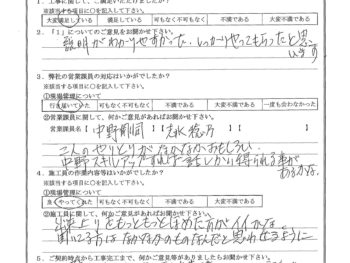 1．工事に関して、ご満足いただけましたか？
※該当する項目に○を記入して下さい。
大変満足している 満足している 可も不可も不可もなく 不満である 大変不満である
2．「1」についてのご意見をお聞かせ下さい。
説明がわかりやすかった。しっかりやってもらったと思
います
3．弊社の営業課員の対応はいかがでしたか？
※該当する項目に○を記入して下さい。
①現場管理について
行き届いていた 可も不可もなく 不満である 大変不満である 一度も会わなかった
②営業課員に関して、何かご意見があればお聞かせ下さい。
営業課員名【中野剛嗣】
二人のやりとりがなかなかおもしろい。
中野スキルアップすれば一緒しかり得られる事が
あるかな。
4．施工員の作業内容等はいかがでしたか？
※該当する項目に○を記入して下さい。
①現場管理について
良くやっていた 可も不可もなく 不満である 大変不満である
②施工員に関して、何かご意見があればお聞かせ下さい。
仕上りをもっともっとほめた方がイイかな。
聞いてる方は なかなかのものなんだと思わせるように
5．ご契約時から工事完工まで、何かご意見等がありましたらお聞かせ下さい